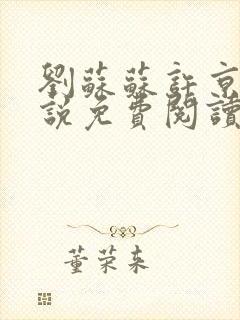 劉蘇蘇許京
說免費閱讀
董荣来